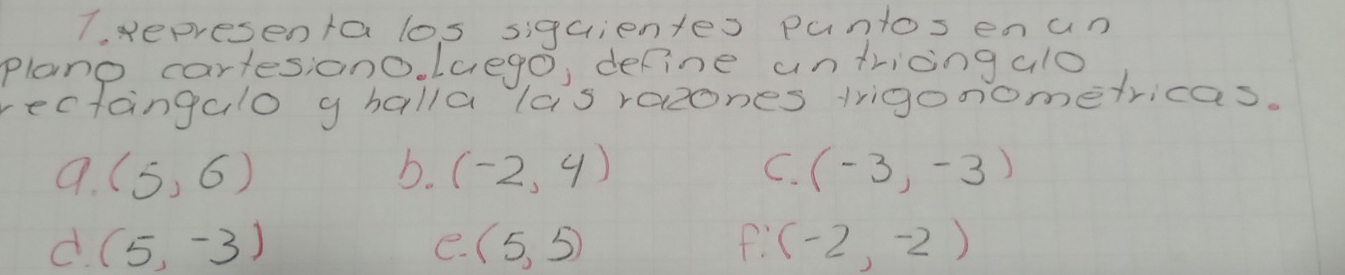 1. Representa los siguientes puntos en un
plano cartesiano. Luego, define un triángulo
rectángulo y halla las razones trigonométricas.
a. (5, 6) b. (-2, 4) c. (-3, -3)
d. (5, -3) e. (5, 5) f. (-2, -2)